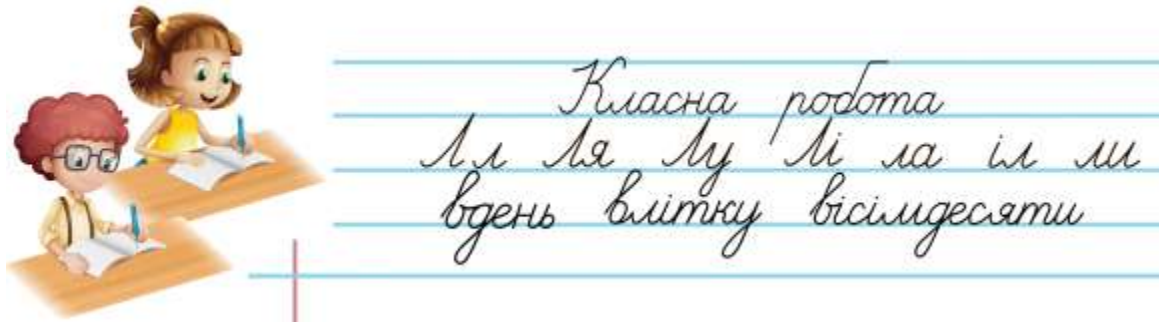 Класна робота
Лл Ля Лу Лі ла іл ли
вдень влітку вісімдесяти